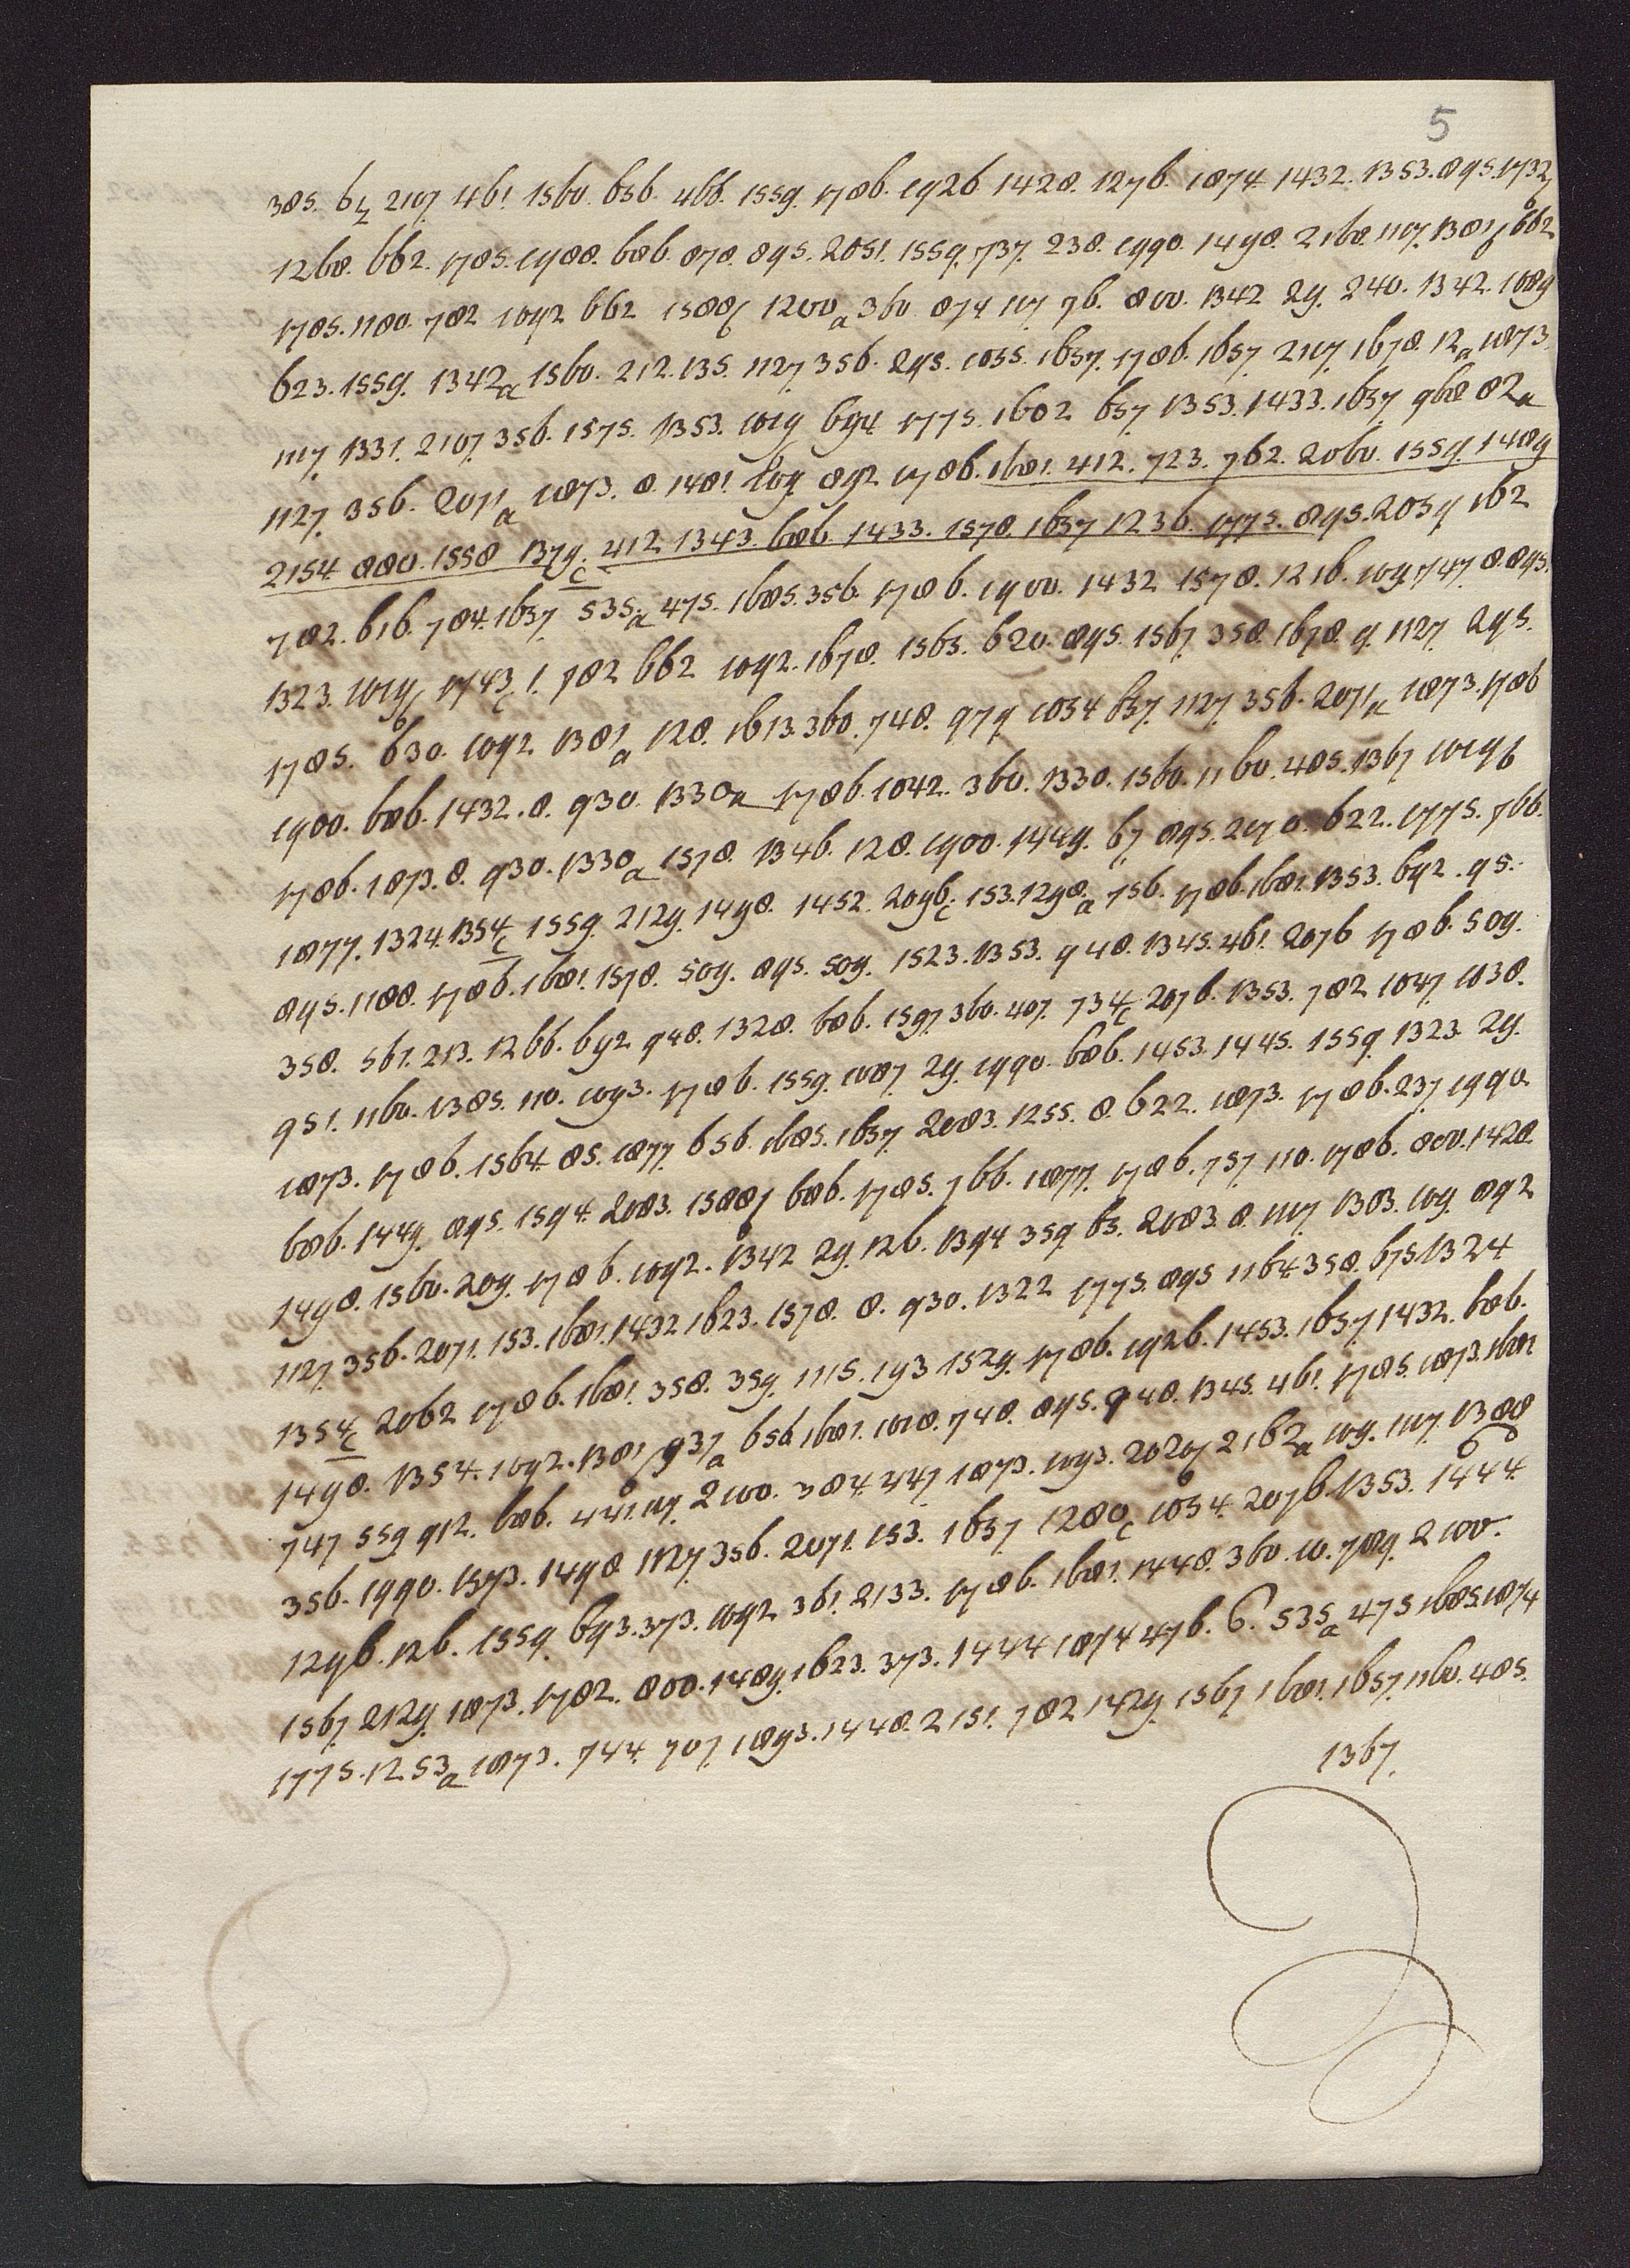 5
385. 67 2107. 461. 1560. 656. 466. 1559. 1786. 1926 1428. 1276. 1874 1432. 1353. 895. 1732
1268. 662. 1785. 1988. 686. 878. 895. 2051. 1559. 737. 238. 1990. 1498. 2168. 1107. 1381b 662
1785. 1180. 782 1092 662 1588b 1200a 360 874 107 76. 800. 1342 29. 240. 1342. 1089
623. 1559. 1342a 1560. 212. 135. 1127 356. 295. 1055. 1657. 1786. 1657 2107. 1678. 12a 1873.
1107 1331. 2107. 356. 1575. 1353. 1019 694 1775. 1602 657 1353. 1433. 1657 968 82a
1127. 356. 2071a 1873. 8. 1481. 109 892 1786. 1681. 412. 723. 762. 2060. 1559. 1489
2154 880. 1558 1379c. 412 1343. 686. 1433. 1578. 1657 1236. 1775. 895. 2059 162
782. 616. 784. 1657 535a 475. 1685. 356. 1786. 1900. 1432 1578. 1216. 109 747 8. 895.
1323. 1019b 1743c. 1. 782 662 1092. 1678. 1565. 620. 895. 1567. 358. 1678. 9. 1127. 295.
1785. 630. 1092 1381a 128. 1613. 360. 748. 979 1054 657. 1127. 356. 2071a 1873. 1786
1900. 686. 1432. 8. 930. 1330a 1786. 1042. 360. 1330. 1560. 1160. 485. 1367 1019b
1786. 1873. 8. 930. 1330a 1578. 1346. 128. 1900. 1449. 67 895. 2170. 622. 1775. 766.
1877. 1324. 1354c 1559. 2129. 1498. 1452. 2096c. 153. 1298a 756. 1786. 1681. 1353. 692. 95.
895. 1188. 1786. 1681. 1578. 509. 895. 509. 1523. 1353. 948. 1345. 461. 2076 1786. 509.
358. 561. 213. 1266. 692 948. 1328. 686. 1597 360. 407. 734c 2076. 1353. 782 1047. 1038.
951. 1160. 1385. 110. 1093. 1786. 1559. 1087. 29. 1990. 686. 1453. 1445. 1559. 1323. 29.
1873. 1786. 1564. 85. 1877. 656. 1685. 1657. 2083. 1255. 8. 622. 1873. 1786. 237. 1990.
686. 1449. 895. 1594. 2083. 1588b 686. 1785. 766. 1877. 1786. 757. 110. 1786. 800. 1428.
1498. 1560. 209. 1786. 1092. 1342 29. 126. 1394 359 65. 2083. 8. 1107 1383. 109. 892
1127 356. 2071. 153. 1681. 1432 1623. 1578. 8. 930. 1322 1775. 895 1164. 358. 675. 1324
1354c 2062 1786. 1681. 358. 359. 1115. 193 1529. 1786. 1926. 1453. 1657 1432. 686.
1498. 1354. 1092. 1381b 937a 656 1681. 1018. 748. 895. 948. 1345. 461. 1785. 1873. 1681
747 559 912. 686. 441. 107. 2100. 384. 447 1873. 1093. 2020b 2162a 109. 1107. 1388b
356. 1990. 1573. 1498 1127 356. 2071. 153. 1657 1280c 1054. 2076. 1353. 1444.
1296. 126. 1559. 693. 373. 1092. 361. 2133. 1786. 1681. 1448. 360. 10. 789. 2100.
1567. 2129. 1873. 1782. 800. 1489. 1623. 373. 1444 1874 476. 6. 535a 475 1685. 1874
1775. 1253a 1873. 744. 707. 1893. 1448. 2151. 782 1429. 1567 1681. 1657. 1160. 485.
1367.